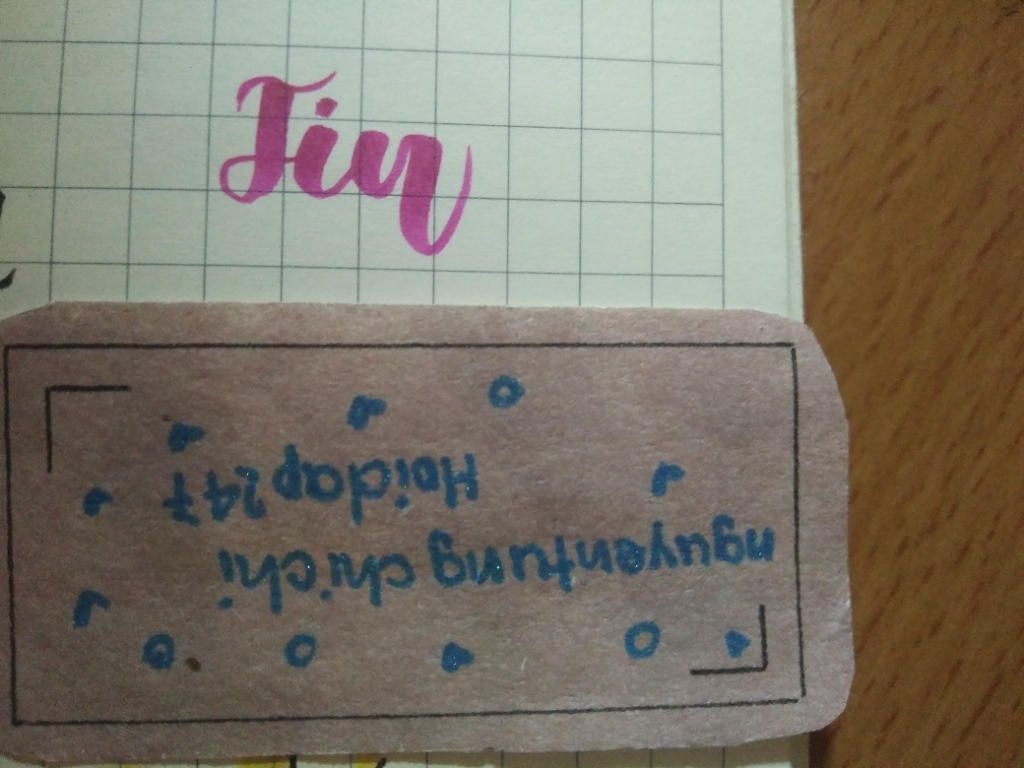 Tin
nguyentung chi chi
Hoidap247